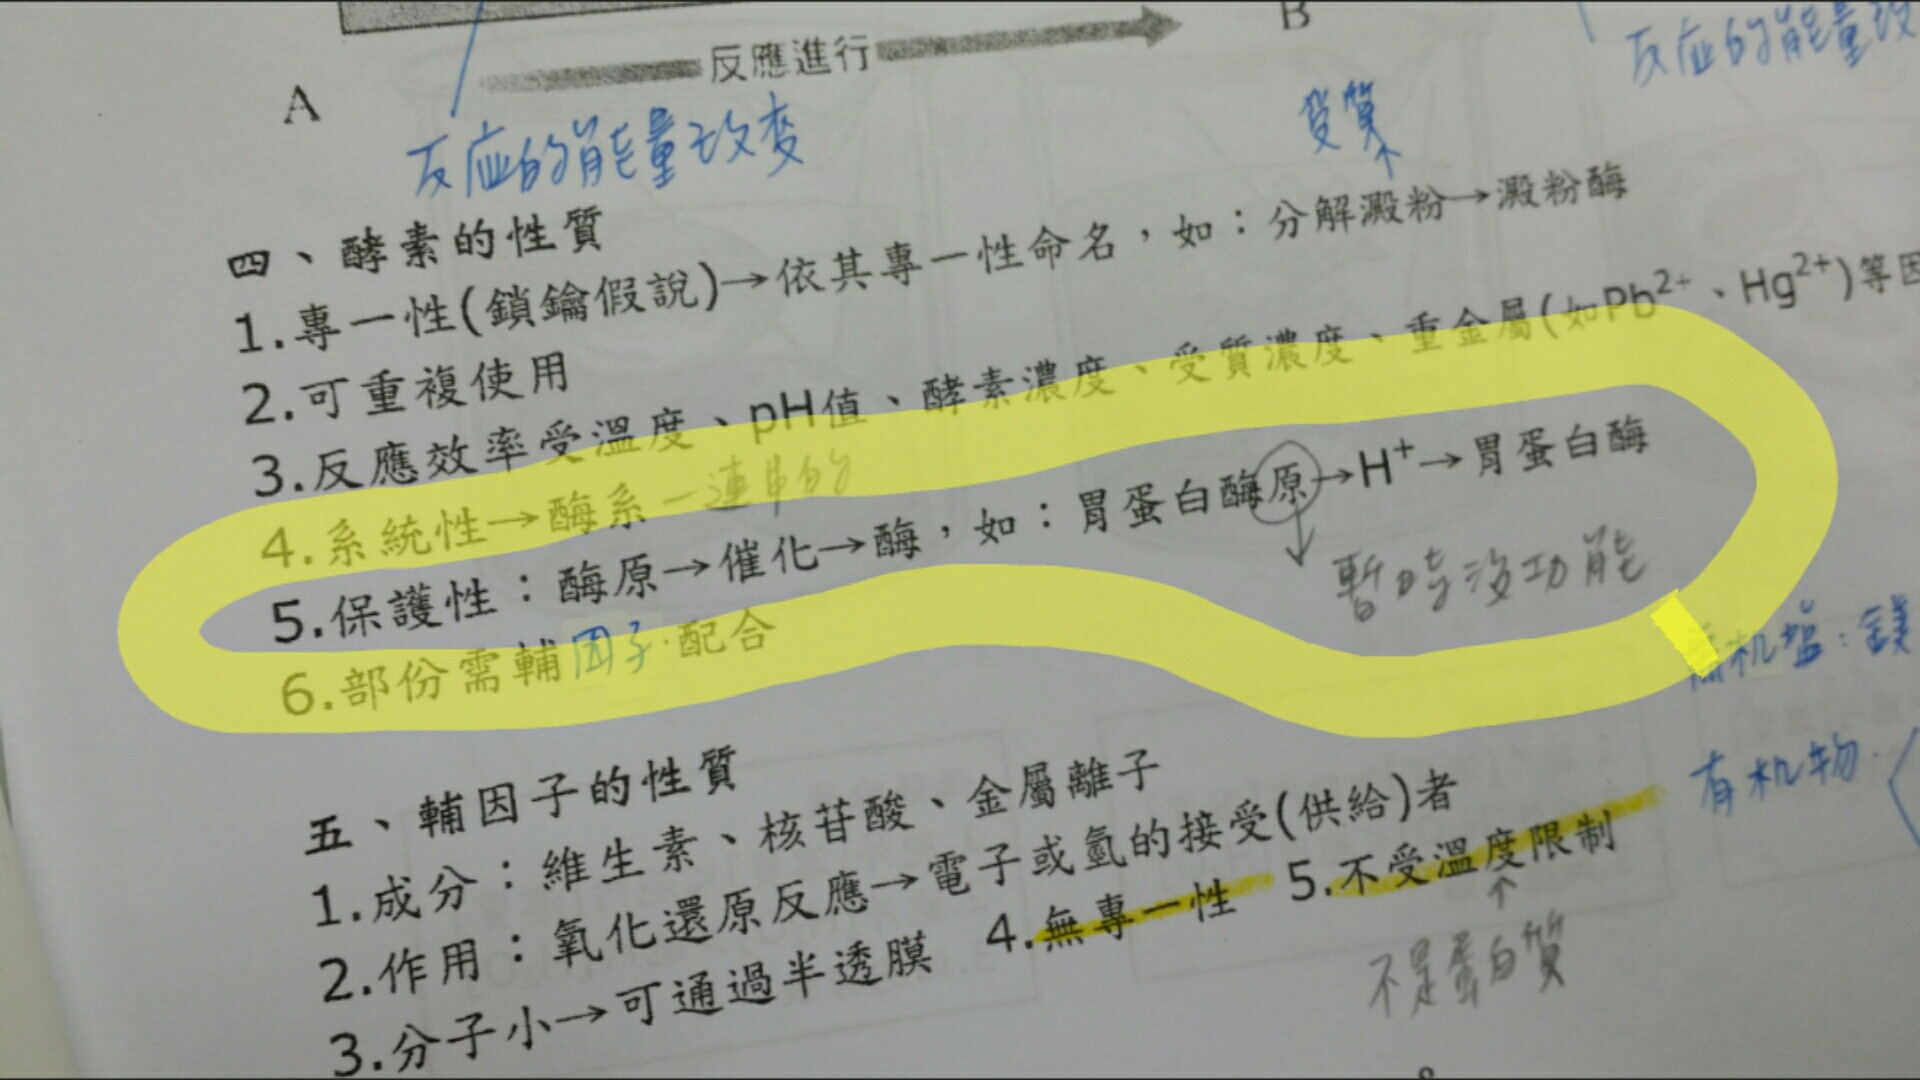 反應進行
A
B
反应的能量改变
反应的能量改
受質
四、酵素的性質
1.專一性(鎖鑰假說)→依其專一性命名，如：分解澱粉→澱粉酶
2.可重複使用
3.反應效率受溫度、pH值、酵素濃度、受質濃度、重金屬(如Pb2+、Hg2+)等因
4.系統性→酶系 一連串的
5.保護性：酶原→催化→酶，如：胃蛋白酶原→H+→胃蛋白酶
暫時沒功能
6.部份需輔因子配合
机盐：镁
有机物
五、輔因子的性質
1.成分：維生素、核苷酸、金屬離子
2.作用：氧化還原反應→電子或氫的接受(供給)者
3.分子小→可通過半透膜 4.無專一性 5.不受溫度限制
不是蛋白質